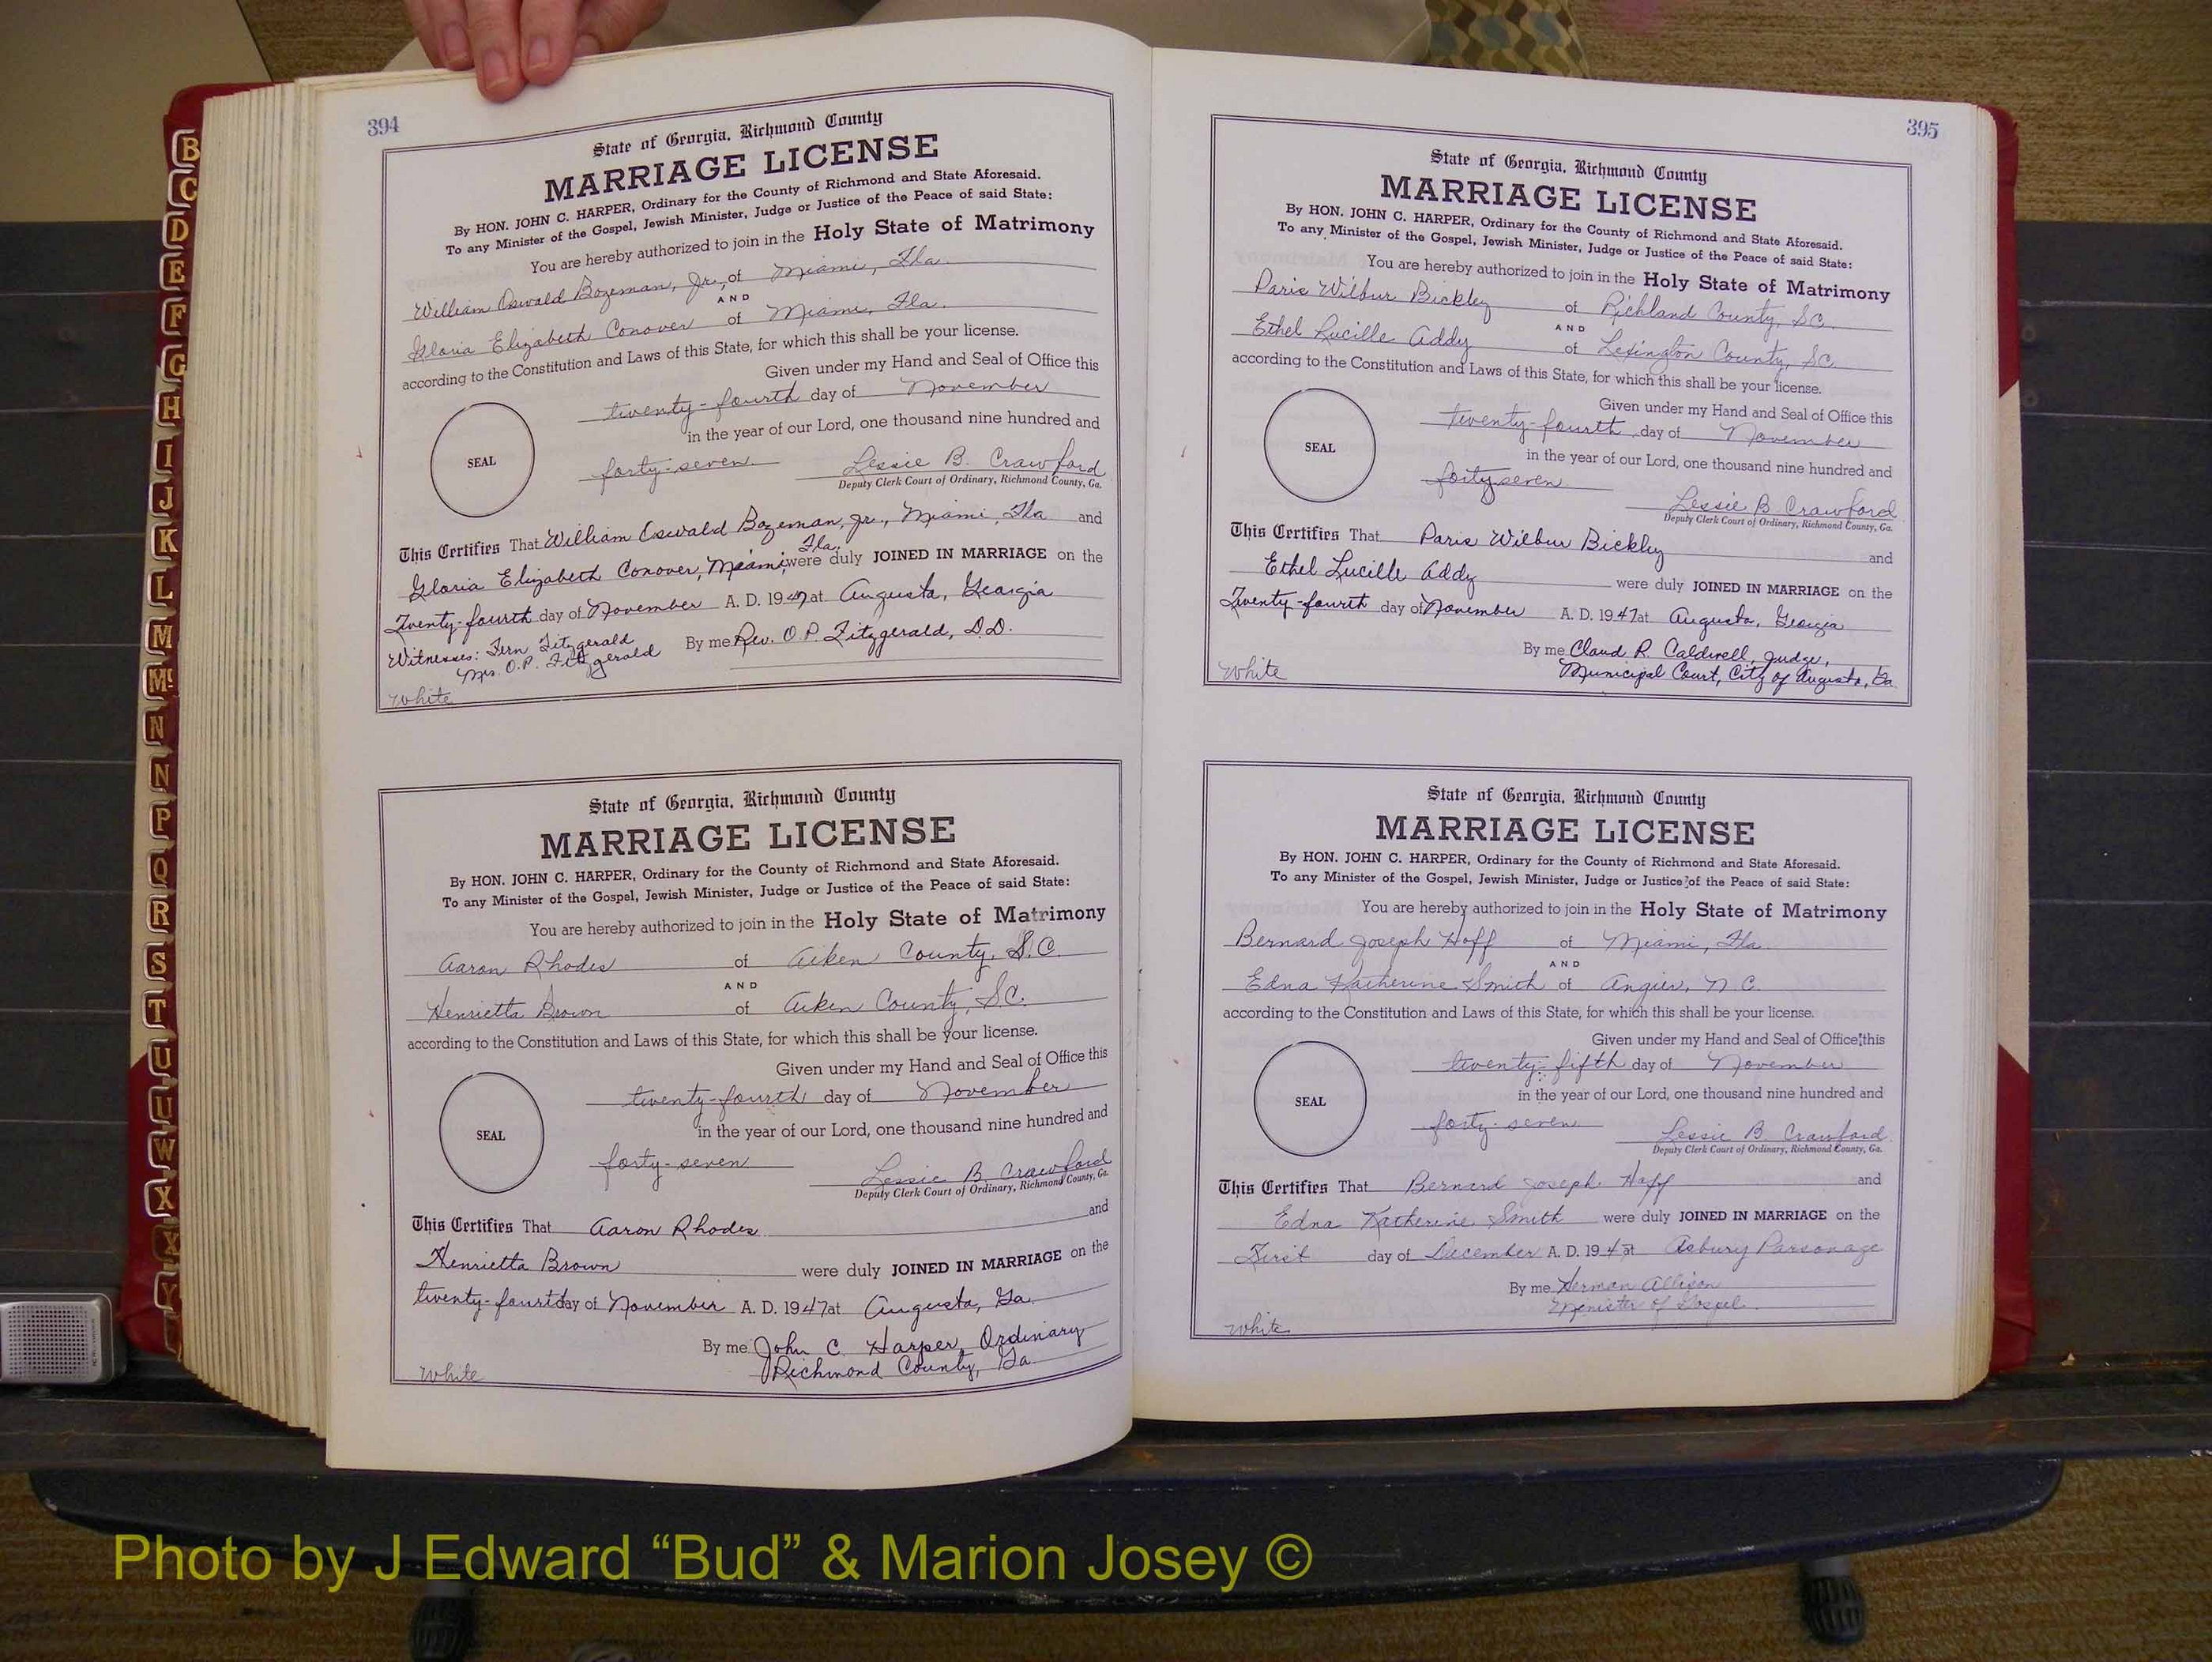 394
State of Georgia, Richmond County
MARRIAGE LICENSE
By HON. JOHN C. HARPER, Ordinary for the County of Richmond and State Aforesaid.
To any Minister of the Gospel, Jewish Minister, Judge or Justice of the Peace of said State:
You are hereby authorized to join in the Holy State of Matrimony
William Oswald Bozeman, Jr., of Miami, Fla.
AND
Gloria Elizabeth Conover of Miami, Fla.
according to the Constitution and Laws of this State, for which this shall be your license.
Given under my Hand and Seal of Office this
twenty-fourth day of November
in the year of our Lord, one thousand nine hundred and
SEAL
forty-seven Lessie B. Crawford
Deputy Clerk Court of Ordinary, Richmond County, Ga.
This Certifies That William Oswald Bozeman, Jr., Miami, Fla and
Gloria Elizabeth Conover, Miami, Fla. were duly JOINED IN MARRIAGE on the
Twenty-fourth day of November A. D. 1947 at Augusta, Georgia
Witnesses: Fern Fitzgerald By me Rev. O.P. Fitzgerald, D.D.
Mrs. O.P. Fitzgerald
White
State of Georgia, Richmond County
MARRIAGE LICENSE
By HON. JOHN C. HARPER, Ordinary for the County of Richmond and State Aforesaid.
To any Minister of the Gospel, Jewish Minister, Judge or Justice of the Peace of said State:
You are hereby authorized to join in the Holy State of Matrimony
Aaron Rhodes of Aiken County, S.C.
AND
Henrietta Brown of Aiken County, S.C.
according to the Constitution and Laws of this State, for which this shall be your license.
Given under my Hand and Seal of Office this
twenty-fourth day of November
in the year of our Lord, one thousand nine hundred and
SEAL
forty-seven Lessie B. Crawford
Deputy Clerk Court of Ordinary, Richmond County, Ga.
This Certifies That Aaron Rhodes and
Henrietta Brown were duly JOINED IN MARRIAGE on the
twenty-fourth day of November A. D. 1947 at Augusta, Ga.
By me John C. Harper, Ordinary
Richmond County, Ga.
White
395
State of Georgia, Richmond County
MARRIAGE LICENSE
By HON. JOHN C. HARPER, Ordinary for the County of Richmond and State Aforesaid.
To any Minister of the Gospel, Jewish Minister, Judge or Justice of the Peace of said State:
You are hereby authorized to join in the Holy State of Matrimony
Paris Wilbur Bickley of Richland County, S.C.
AND
Ethel Lucille Addy of Lexington County, S.C.
according to the Constitution and Laws of this State, for which this shall be your license.
Given under my Hand and Seal of Office this
twenty-fourth day of November
in the year of our Lord, one thousand nine hundred and
SEAL
forty-seven
Lessie B. Crawford
Deputy Clerk Court of Ordinary, Richmond County, Ga.
This Certifies That Paris Wilbur Bickley and
Ethel Lucille Addy were duly JOINED IN MARRIAGE on the
Twenty-fourth day of November A. D. 1947 at Augusta, Georgia
By me Claud R. Caldwell, Judge,
Municipal Court, City of Augusta, Ga.
White
State of Georgia, Richmond County
MARRIAGE LICENSE
By HON. JOHN C. HARPER, Ordinary for the County of Richmond and State Aforesaid.
To any Minister of the Gospel, Jewish Minister, Judge or Justice of the Peace of said State:
You are hereby authorized to join in the Holy State of Matrimony
Bernard Joseph Hoff of Miami, Fla.
AND
Edna Katherine Smith of Angier, N.C.
according to the Constitution and Laws of this State, for which this shall be your license.
Given under my Hand and Seal of Office this
twenty-fifth day of November
in the year of our Lord, one thousand nine hundred and
SEAL
forty-seven Lessie B. Crawford
Deputy Clerk Court of Ordinary, Richmond County, Ga.
This Certifies That Bernard Joseph Hoff and
Edna Katherine Smith were duly JOINED IN MARRIAGE on the
First day of December A. D. 1947 at Asbury Parsonage
By me Herman Allison
Minister of Gospel.
White
B
C
D
E
F
G
H
I
J
K
L
M
Mc
N
N
P
Q
R
S
T
U
U
W
X
X
Y
Photo by J Edward “Bud” & Marion Josey ©